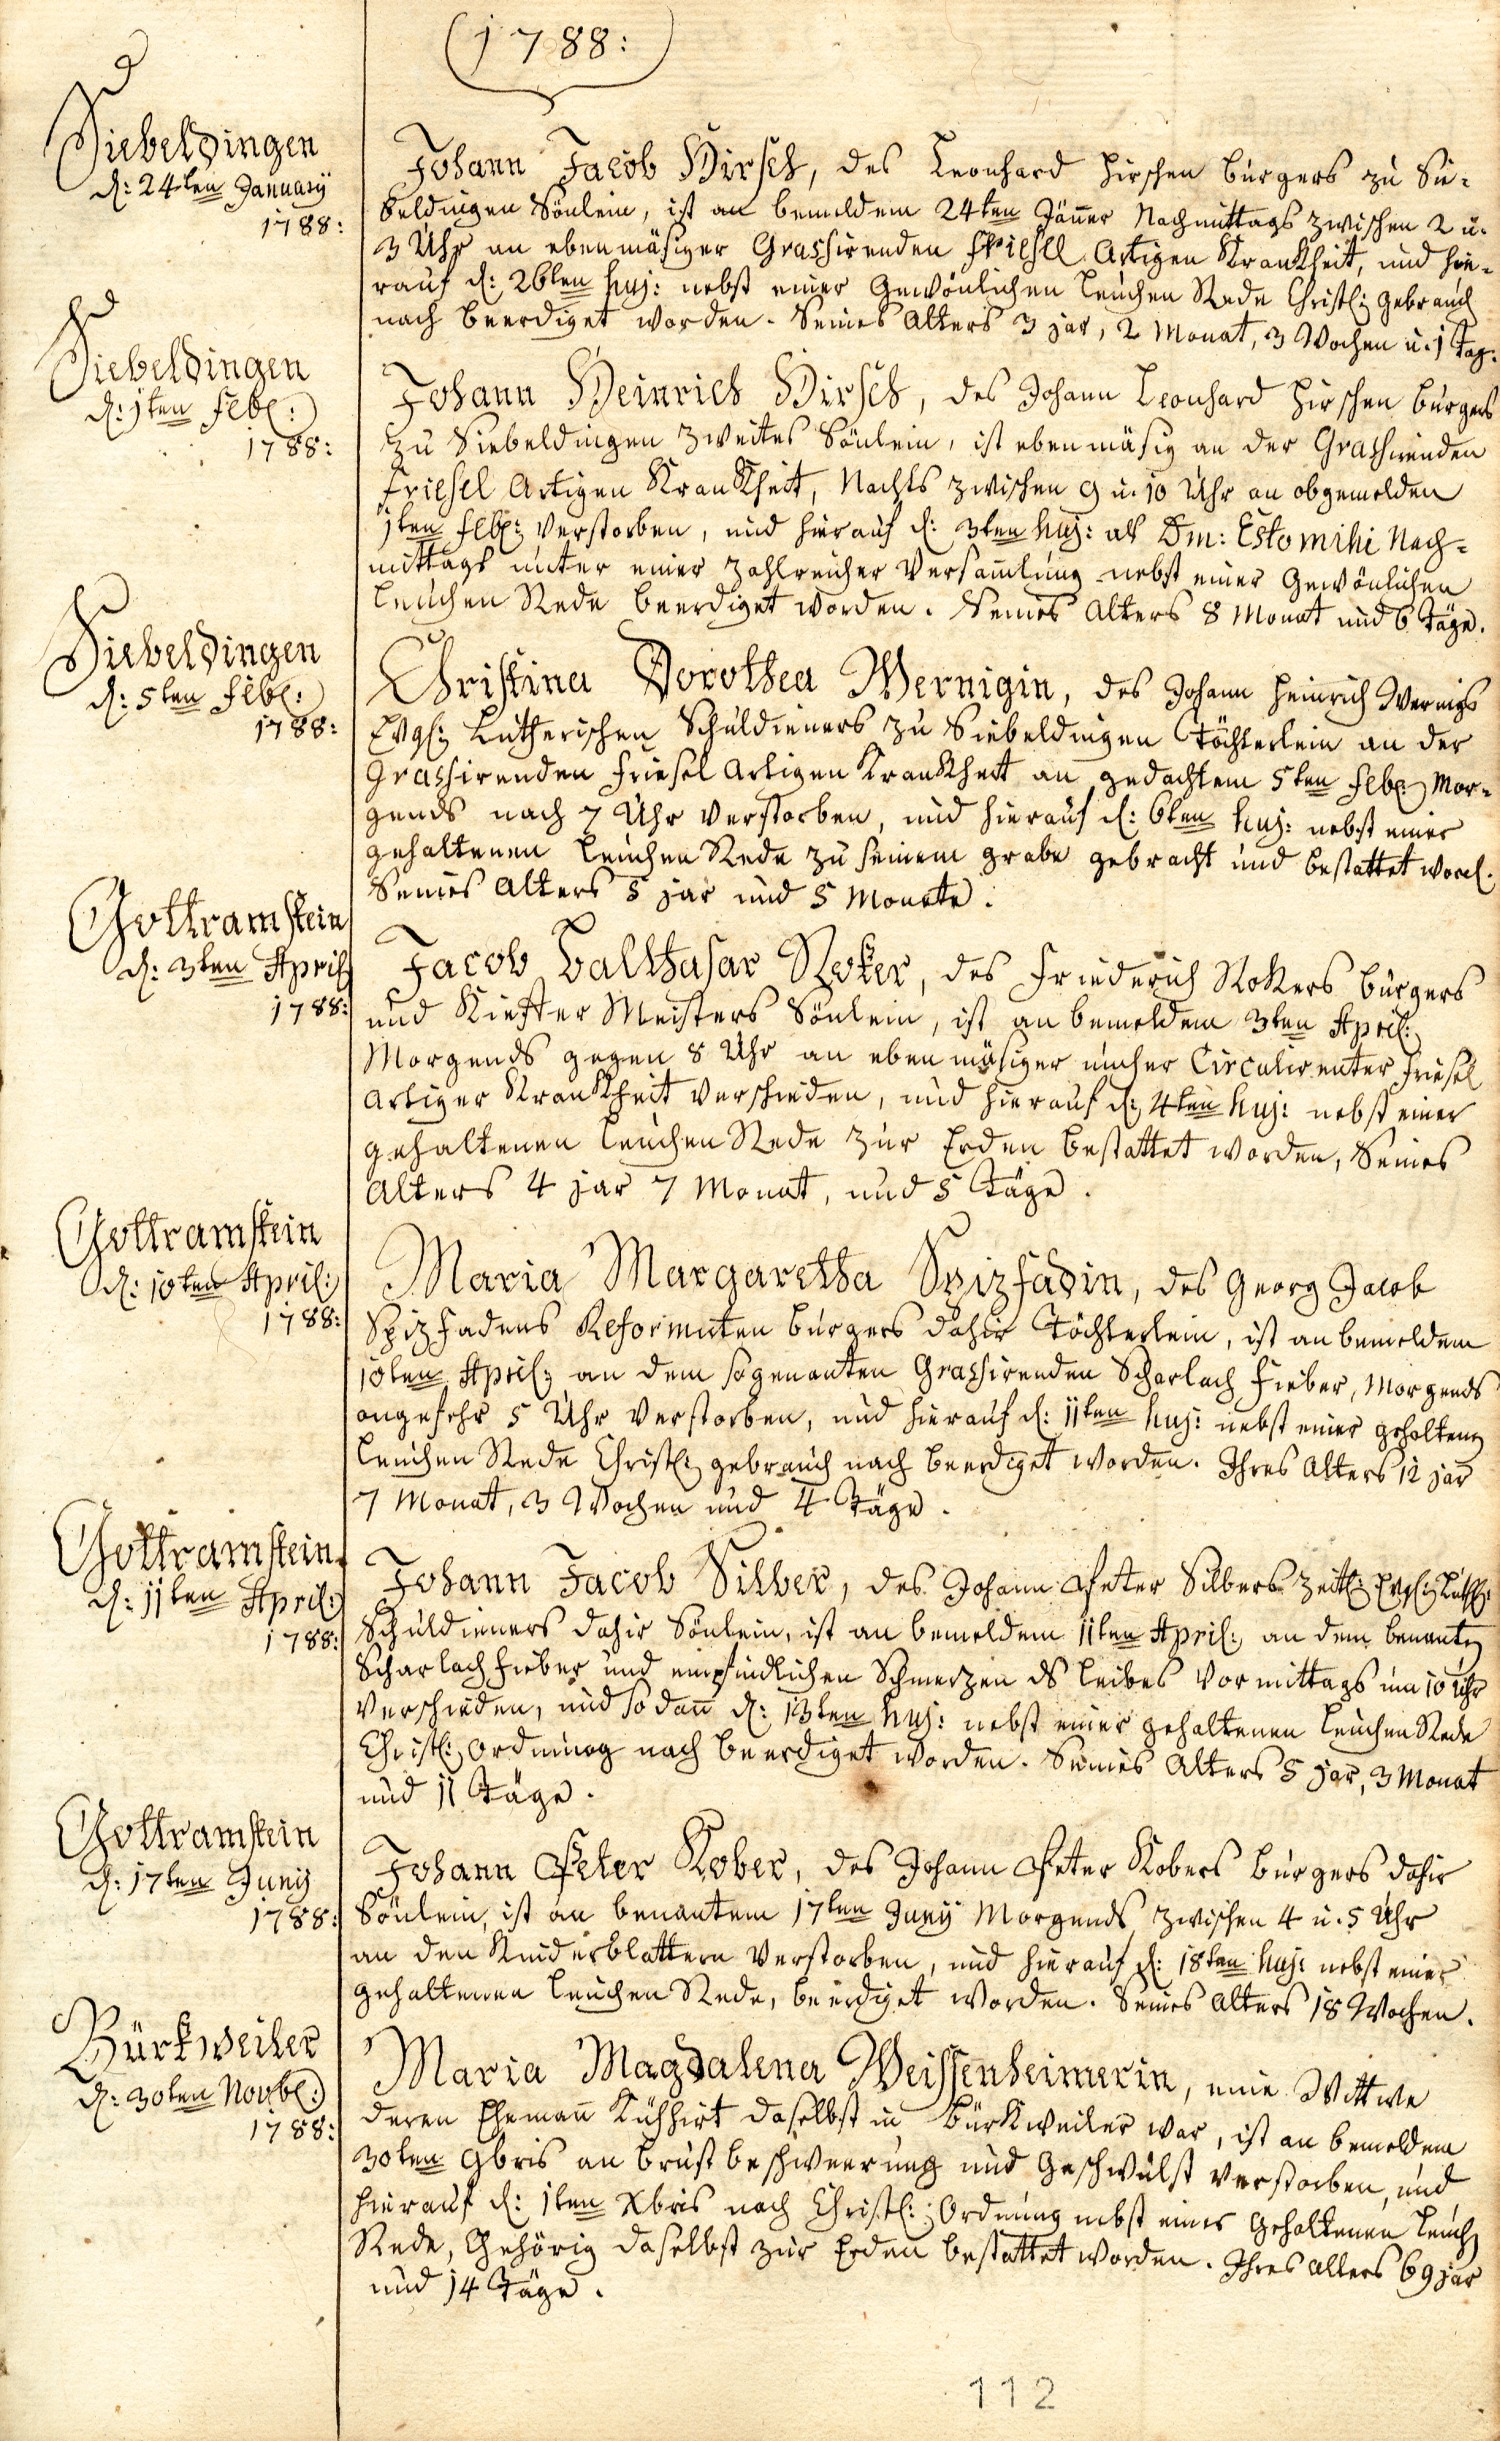 (1788:)
Siebeldingen
d: 24ten January
1788:
Johann Jacob Hirsch, des Leonhard Hirschen Bürgers zu Sie-
beldingen Sönlein, ist an bemeldem 24ten Jäner Nachmittags zwischen 2 u.
3 Uhr an ebenmäsiger Grassirenden Friesel Artigen Krankheit, und hie-
rauf d: 26ten huj: nebst einer Gewönlichen Leichen Rede Christl: gebrauch
nach beerdiget worden. Seines Alters 3 jar, 2 Monat, 3 Wochen u. 1 Tag.
Siebeldingen
d: 1ten Febr:
1788:
Johann Heinrich Hirsch, des Johann Leonhard Hirschen Bürgers
zu Siebeldingen zweites Sönlein, ist ebenmäsig an der Grassirenden
Friesel Artigen Krankheit, Nachts zwischen 9 u. 10 Uhr an obgemelden
1ten Febr: verstorben, und hierauf d: 3ten huj: als Dm: Estomihi Nach-
mittags unter einer zahlreicher Versamlung nebst einer Gewönlichen
Leichen Rede beerdiget worden. Seines Alters 8 Monat und 6 Täge.
Siebeldingen
d: 5ten Febr:
1788:
Christina Dorothea Wernigin, des Johann Heinrich Wernigs
Evgl: Lutherischen Schuldieners zu Siebeldingen Töchterlein an der
Grassirenden Friesel Artigen Krankheit an gedachtem 5ten Febr: Mor-
gends nach 7 Uhr verstorben, und hierauf d: 6ten huj: nebst einer
gehaltenen Leichen Rede zu seinem grabe gebracht und bestattet word.
Seines Alters 5 jar und 5 Monate.
Gottramstein
d: 3ten April
1788:
Jacob Balthasar Roker, des Friederich Rokers Bürgers
und Kieffer Meisters Sönlein, ist an bemeldem 3ten April:
Morgends gegen 8 Uhr an ebenmäsiger Circulirenter Friesel
Artiger Krankheit verschieden, und hierauf d: 4ten huj: nebst einer
gehaltenen Leichen Rede zur Erden bestattet worden, Seines
Alters 4 jar 7 Monat, und 5 Täge.
Gottramstein
d: 10ten April:
1788:
Maria Margaretha Spizfadin, des Georg Jacob
Spizfadens Reformirten Bürgers dahir Töchterlein, ist an bemeldem
10ten April: an dem sogenanten Grassirenden Scharlach Fieber, Morgends
ongefehr 5 Uhr verstorben, und hierauf d: 11ten huj: nebst einer gehaltenen
Leichen Rede Christl: gebrauch nach beerdiget worden. Ihres Alters 12 jar
7 Monat, 3 Wochen und 4 Täge.
Gottramstein
d: 11ten April:
1788:
Johann Jacob Silber, des Johann Peter Silbers zeitl: Evgl: Luth:
Schuldieners dahir Sönlein, ist an bemeldem 11ten April: an dem benanten
Scharlach Fieber und empfindlichen Schmerzen ds Leibes Vormittags um 10 Uhr
verschieden, und so dann d: 13ten huj: nebst einer gehaltenen Leichen Rede
Christl: Ordnung nach beerdiget worden. Seines Alters 5 jar, 3 Monat
und 11 Täge.
Gottramstein
d: 17ten Junij
1788:
Johann Peter Kober, des Johann Peter Kobers Bürgers dahir
Sönlein, ist an benantem 17ten Junij Morgends zwischen 4 u. 5 Uhr
an den Kinderblattern verstorben, und hierauf d: 18ten huj: nebst einer
gehaltenen Leichen Rede, beerdiget worden. Seines Alters 18 Wochen.
Bürkweiler
d: 30ten Novbr:
1788:
Maria Magdalena Weissenheimerin, eine Wittwe
deren Ehemann Kühhirt daselbst in Bürkweiler war, ist an bemeldem
30ten 9bris an Brust beschweerung und Geschwulst verstorben, und
hierauf d: 1ten Xbris nach Christl: Ordnung nebst einer Gehaltenen Leich
Rede, Gehörig daselbst zur Erden bestattet worden. Ihres Alters 69 jar
und 14 Täge.
112